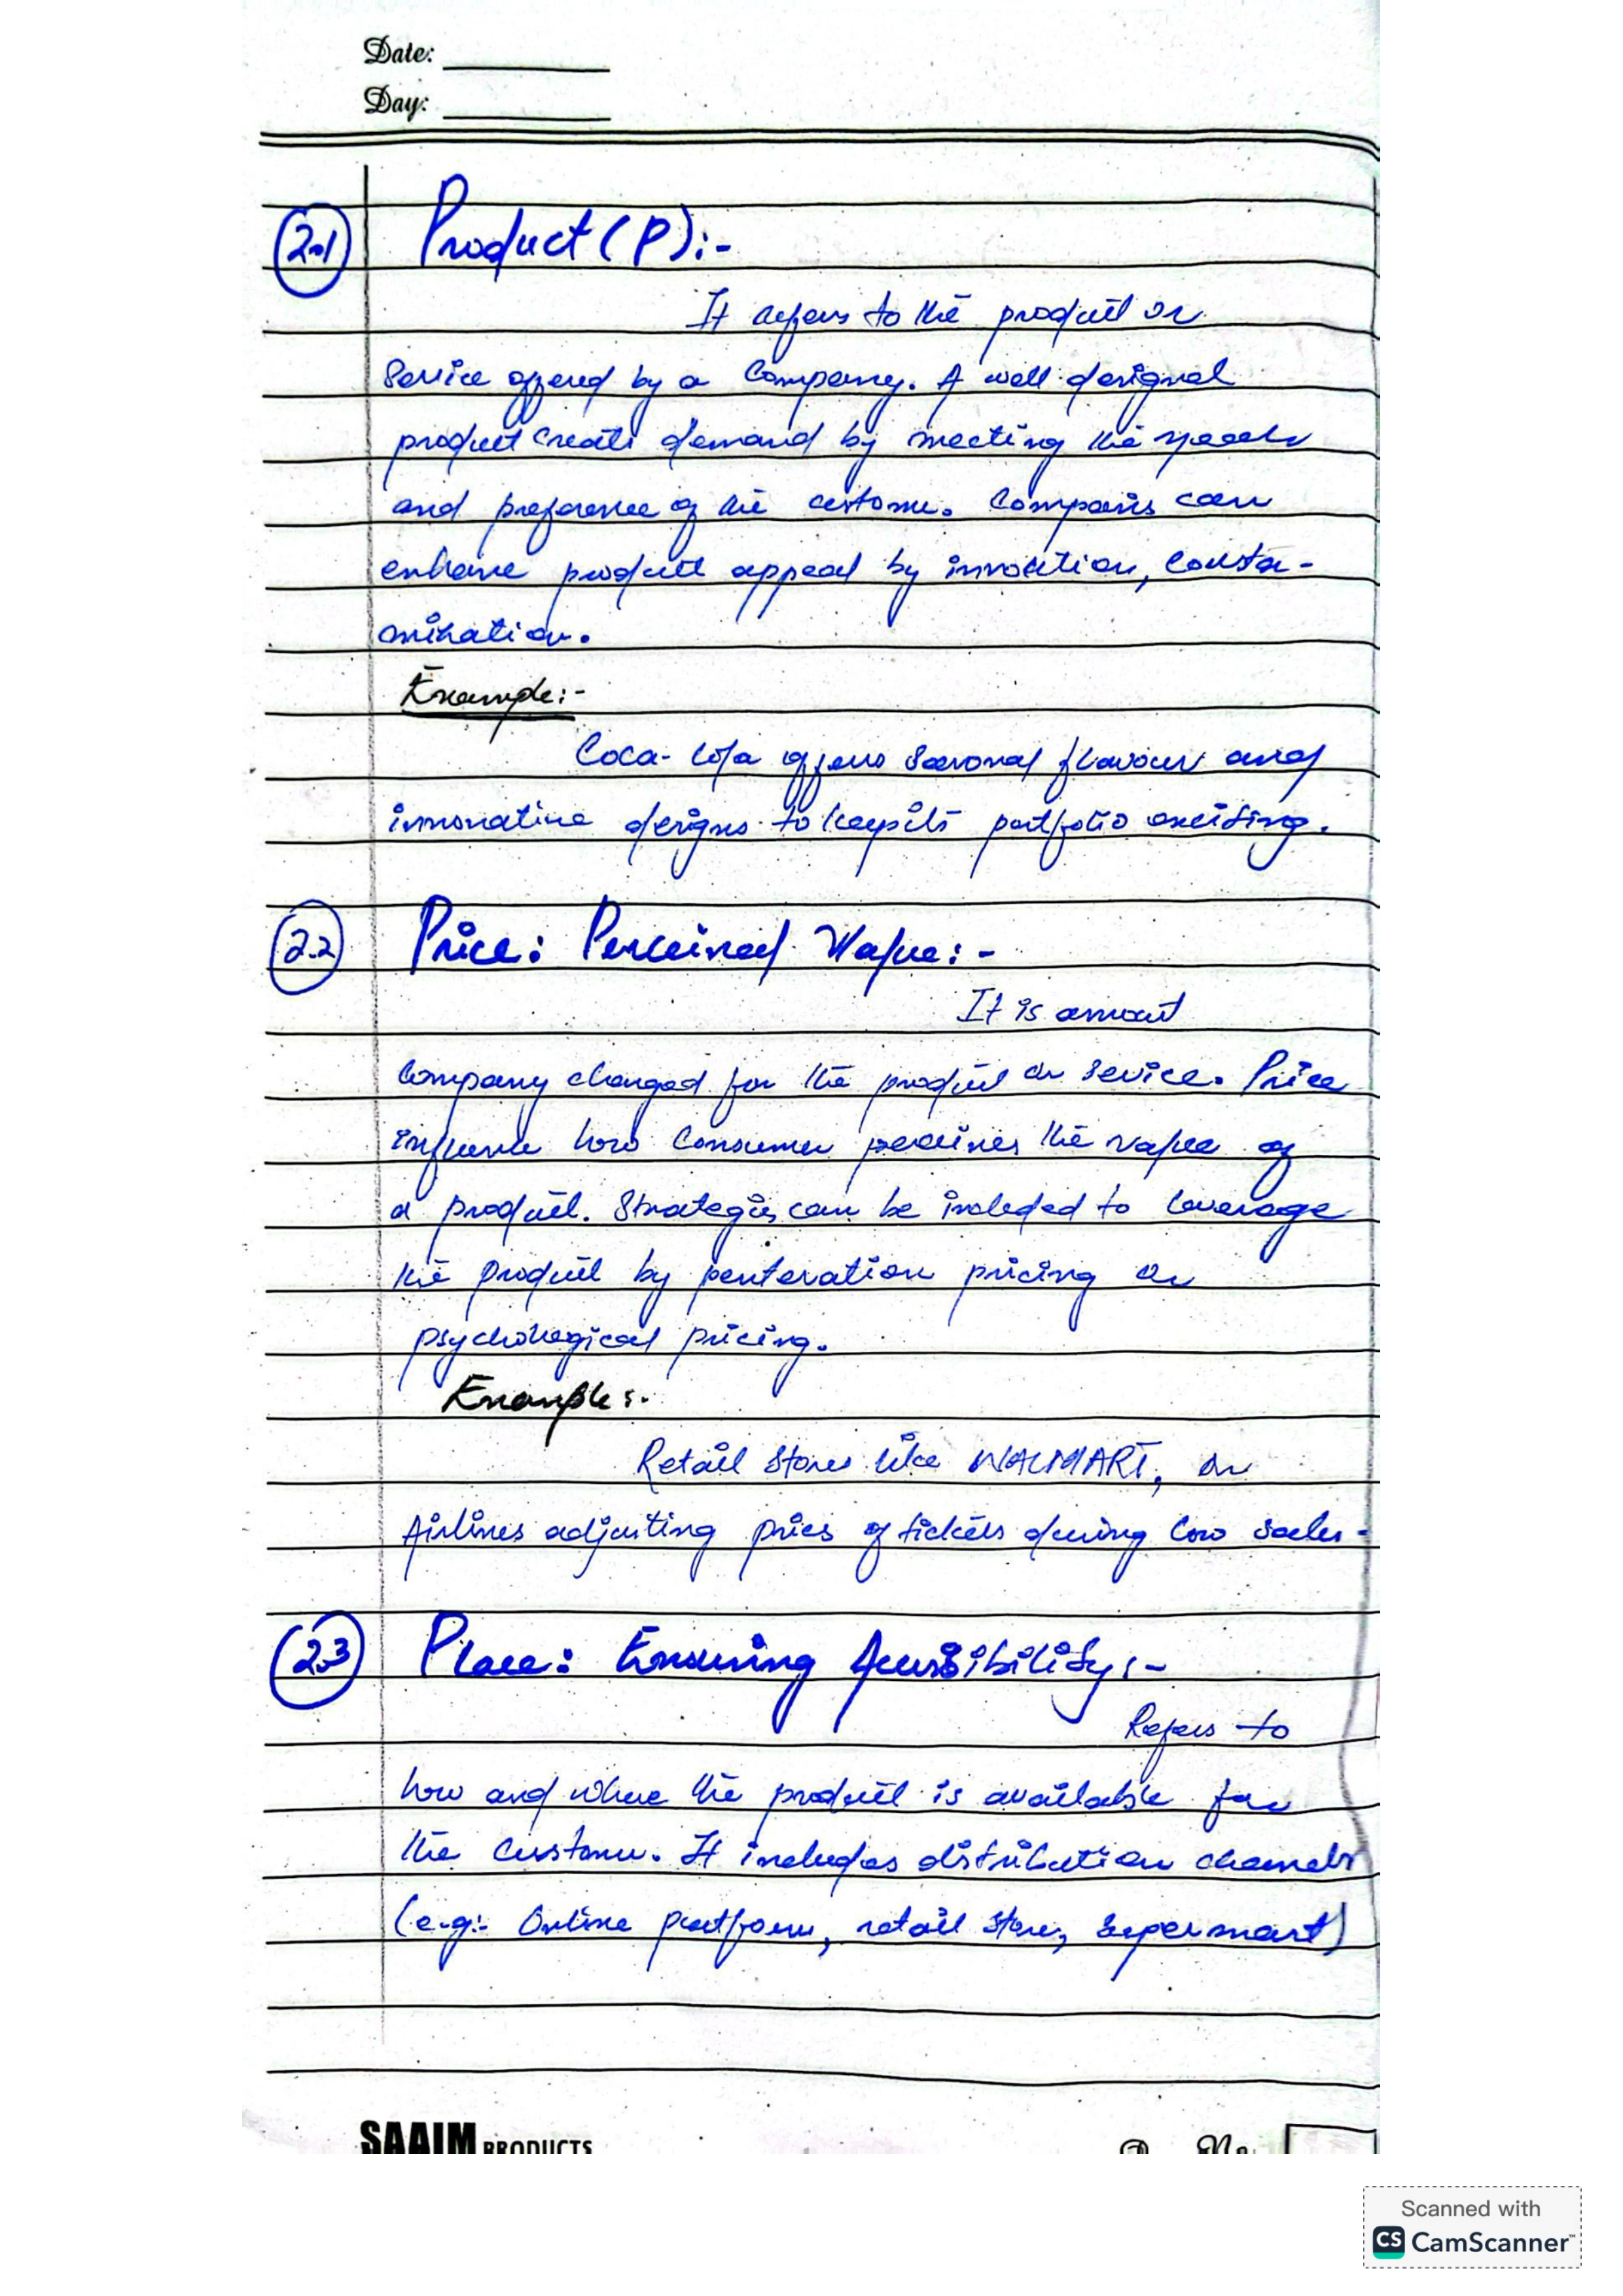 Date:
Day:
2.1 Product (P):-
It refers to the product or
Service offered by a Company. A well designed
product create demand by meeting the needs
and preference of the custome. Companis can
enhance product appeal by innovation, custo-
mization.
Example:-
Coca-Cola offers seasonal flavour and
innovative designs to keep its portfolio exciting.
2.2 Price: Perceived Value:-
It is amount
Company charged for the product or sevice. Price
influence how Consumer perceives the value of
a product. Strategies can be included to leverage
the product by penteration pricing or
psychological pricing.
Example:-
Retail Stores like WALMART, or
Airlines adjusting prices of tickets during low sales.
2.3 Place: Ensuring Accessibility:-
Refers to
how and where the product is available for
the Custome. It includes distribution channels
(e.g:- Online platform, retail store, supermart)
SAAIM PRODUCTS
Scanned with
CS CamScanner